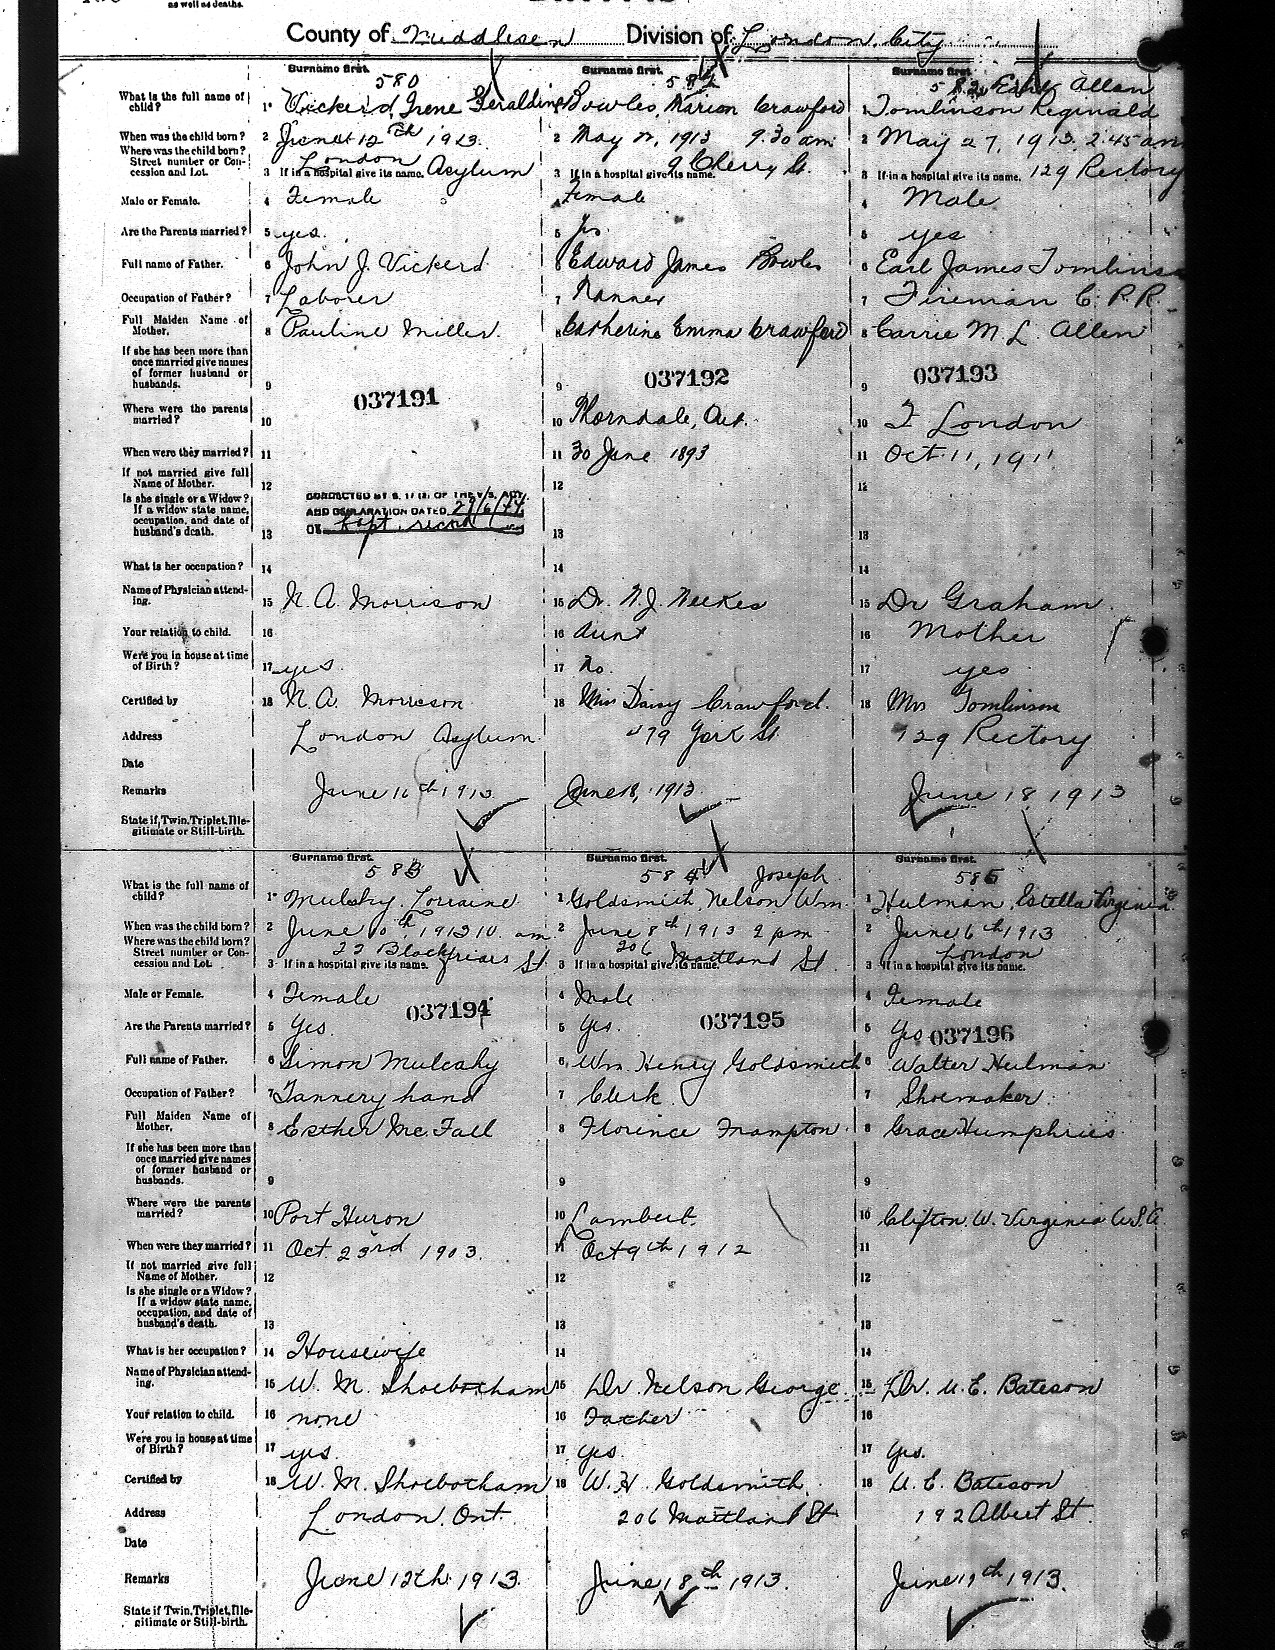 as well as deaths.
County of Middlesex Division of London City
Surname first. Surname first. Surname first.
580 582 Earl Allen
What is the full name of child? 1 Vickerd, Irene Geraldine Bowles, Marion Crawford 1 Tomlinson Reginald
When was the child born? 2 June 12th 1913 2 May 1913 9.30 am. 2 May 27, 1913, 2.45 am
Where was the child born? Street number or Concession and Lot. 3 If in a hospital give its name. London Asylum 3 If in a hospital give its name. 9 Cherry St. 3 If in a hospital give its name. 129 Rectory
Male or Female. 4 Female 4 Female 4 Male
Are the Parents married? 5 yes. 5 5 yes
Full name of Father. 6 John J. Vickerd 6 Edward James Bowles 6 Earl James Tomlinso
Occupation of Father? 7 Laborer 7 7 Fireman C. P. R.
Full Maiden Name of Mother. 8 Pauline Miller. 8 Catherine Emma Crawford 8 Carrie M. L. Allen
If she has been more than once married give names of former husband or husbands. 9 9 9
037191 037192 037193
Where were the parents married? 10 10 Thorndale, Ont. 10 London
When were they married? 11 11 30 June 1893 11 Oct. 11, 1911
If not married give full Name of Mother. 12 12 12
Is she single or a Widow? If a widow state name, occupation, and date of husband's death. 13 13 13
CORRECTED BY S. OF THE V.S. ACT.
AND DECLARATION DATED 29/6/44
OR bapt. record
What is her occupation? 14 14 14
Name of Physician attending. 15 N. A. Morrison 15 Dr. N. J. Neekes 15 Dr Graham.
Your relation to child. 16 16 Aunt 16 Mother
Were you in house at time of Birth? 17 yes. 17 No. 17 yes
Certified by 18 N. A. Morrison 18 Miss Daisy Crawford. 18 Mrs Tomlinson
Address London Asylum. 479 York St. 129 Rectory
Date
Remarks June 16th 1913 June 18, 1913 June 18 1913
State if Twin, Triplet, Illegitimate or Still-birth.
Surname first. Surname first. Surname first.
583 584 Joseph 585
What is the full name of child? 1 Mulcahy, Lorraine 1 Goldsmith, Nelson Wm. 1 Hulman, Estella Virginia
When was the child born? 2 June 10th 1913 10. am 2 June 8th 1913 2 pm 2 June 6th 1913
Where was the child born? Street number or Concession and Lot. 3 If in a hospital give its name. 22 Blackfriars St 3 If in a hospital give its name. 206 Maitland St 3 If in a hospital give its name. London
Male or Female. 4 Female 4 Male 4 Female
037194 037195 037196
Are the Parents married? 5 Yes. 5 Yes. 5 Yes
Full name of Father. 6 Simon Mulcahy 6 Wm. Henry Goldsmith 6 Walter Hulman
Occupation of Father? 7 Tannery hand 7 Clerk 7 Shoemaker
Full Maiden Name of Mother. 8 Esther Mc.Fall 8 Florence Frampton 8 Grace Humphries
If she has been more than once married give names of former husband or husbands. 9 9 9
Where were the parents married? 10 Port Huron 10 Lambeth. 10 Clifton, W. Virginia U.S.A
When were they married? 11 Oct. 23rd 1903. 11 Oct 9th, 1912 11
If not married give full Name of Mother. 12 12 12
Is she single or a Widow? If a widow state name, occupation, and date of husband's death. 13 13 13
What is her occupation? 14 Housewife 14 14
Name of Physician attending. 15 W. M. Shoebotham 15 Dr. Nelson George 15 Dr. U. E. Bateson
Your relation to child. 16 none 16 Father 16
Were you in house at time of Birth? 17 yes. 17 yes. 17 Yes.
Certified by 18 W. M. Shoebotham 18 W. H. Goldsmith. 18 U. E. Bateson
Address London. Ont. 206 Maitland St 192 Albert St.
Date
Remarks June 12th 1913. June 18th 1913. June 19th 1913.
State if Twin, Triplet, Illegitimate or Still-birth.